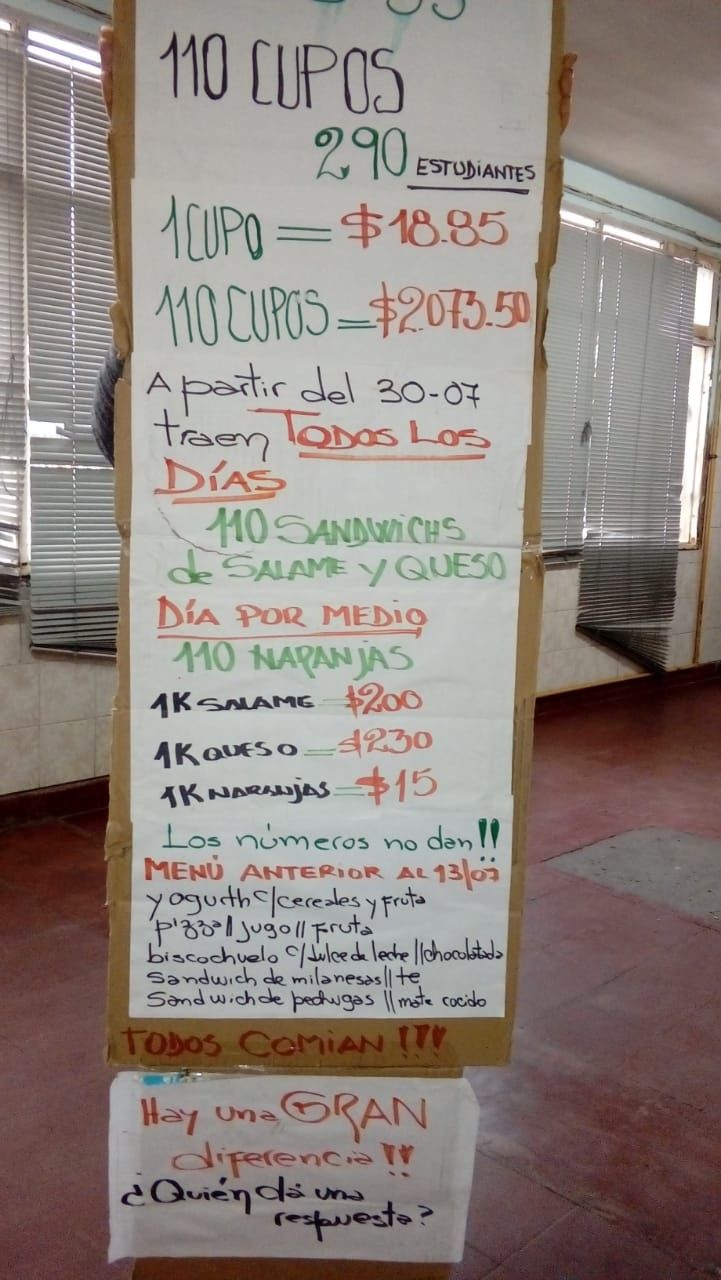 110 CUPOS
290 ESTUDiANTES
1 CUPO = $18.85
110 CUPOS = $2.073.50
A partir del 30-07
traen TODOS LOS
DÍAS
110 SANDWICHS
de SALAME Y QUESO
DÍA POR MEDIO
110 NARANJAS
1K SALAME = $200
1K QUESO = $230
1K NARANJAS = $15
Los números no dan!!
MENÚ ANTERIOR AL 13/07
yogurth c/cereales y Fruta
pizza//jugo//Fruta
biscochuelo c/dulce de leche//chocolatada
Sandwich de milanesas//te
Sandwich de pechugas//mate cocido
TODOS COMIAN!!!
Hay una GRAN
diferencia!!
¿Quién dá una
respuesta?